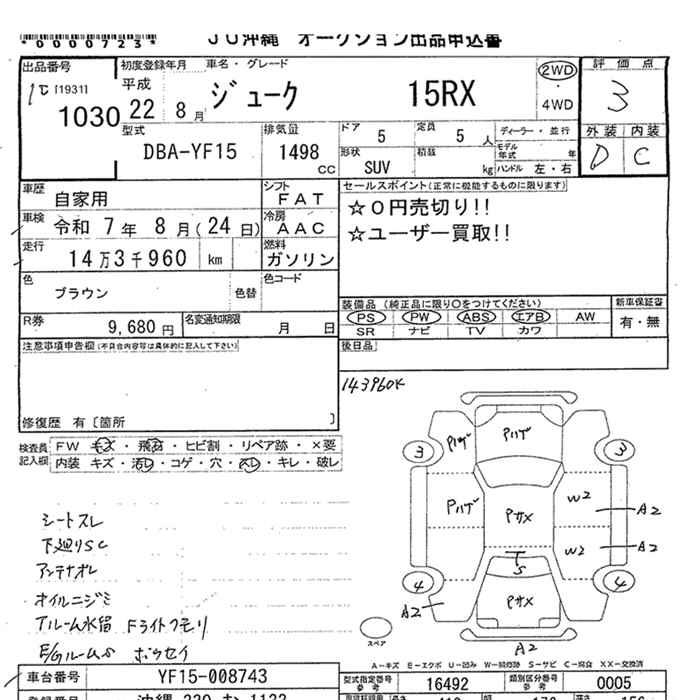 *0000723*
JU沖縄 オークション出品申込書
出品番号
1℃ [1931]
1030
初度登録年月
平成
22 8月
車名・グレード
ジューク 15RX
2WD
4WD
評価点
3
外装 内装
D C
型式
DBA-YF15
排気量
1498 cc
ドア 5
定員 5 人
形状 SUV
積載 kg
ディーラー・並行
モデル年式 年
ハンドル 左・右
車歴 自家用
シフト FAT
車検 令和 7年 8月(24日)
冷房 AAC
走行 14万3千960 km
燃料 ガソリン
色 ブラウン 色替
色コード
R券 9,680円
名変通知期限 月 日
セールスポイント(正常に機能するものに限ります)
☆0円売切り!!
☆ユーザー買取!!
装備品 (純正品に限り○をつけてください)
PS PW ABS エアB AW
SR ナビ TV カワ
新車保証書
有・無
後日品
注意事項申告欄(不具合内容等は具体的に記入して下さい)
修復歴 有〔箇所 〕
143960K
検査員記入欄
FW キズ・飛石・ヒビ割・リペア跡・×要
内装 キズ・汚れ・コゲ・穴・スレ・キレ・破レ
シートスレ
下廻りSC
アンテナオレ
オイルニジミ
Tルーム水留 Fライトクモリ
E/GルームS
3 Pハゲ Pハゲ 3
Pハゲ Pサメ W2 A2
W2 A2
S
4 A2 Pサメ 4
A2
スペア
A-キズ E-エクボ U-凹み W-補修跡 S-サビ C-腐食 XX-交換済
車台番号 YF15-008743
型式指定番号 参考 16492
類別区分番号 参考 0005